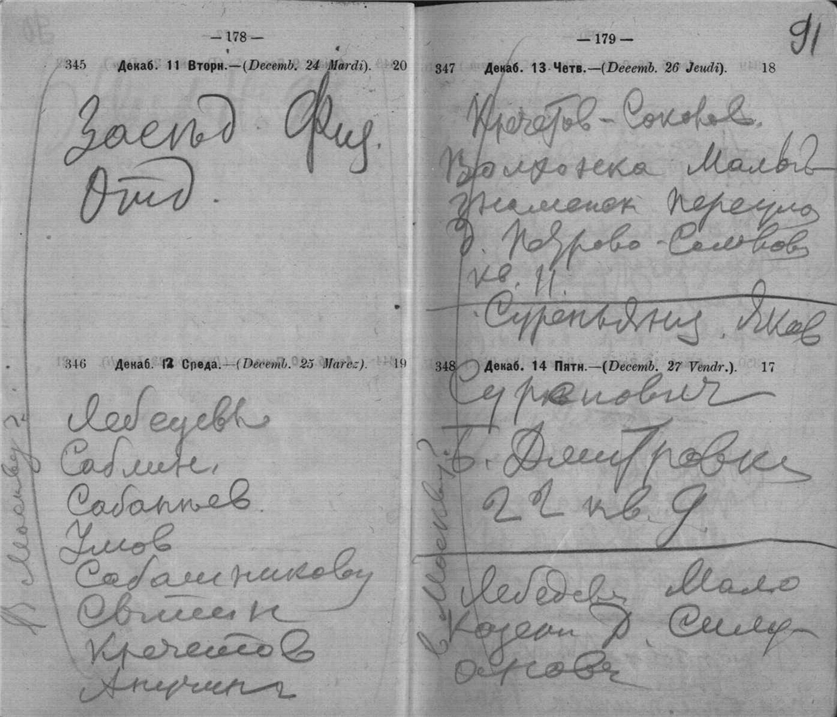 — 178 —
345 Декаб. 11 Вторн.—(Decemb. 24 Mardi). 20
Засѣд. Физ.
Отд.
346 Декаб. 12 Среда.—(Decemb. 25 Marez). 19
Лебедевы
Саблин.
Сабанѣев.
Умов
Сабашникову
Кречетов
Анучин
в Москву?
— 179 —
91
347 Декаб. 13 Четв.—(Decemb. 26 Jeudi). 18
Кречетов-Соколов.
Волхонка Малый
Знаменск переулок
кв. 11.
Сурепьянц. Яков
348 Декаб. 14 Пятн.—(Decemb. 27 Vendr.). 17
Суренович
Б. Дмитровка
22 кв. 9.
Лебедев Мало
Козен Д. Силу-
анова
в Москву?